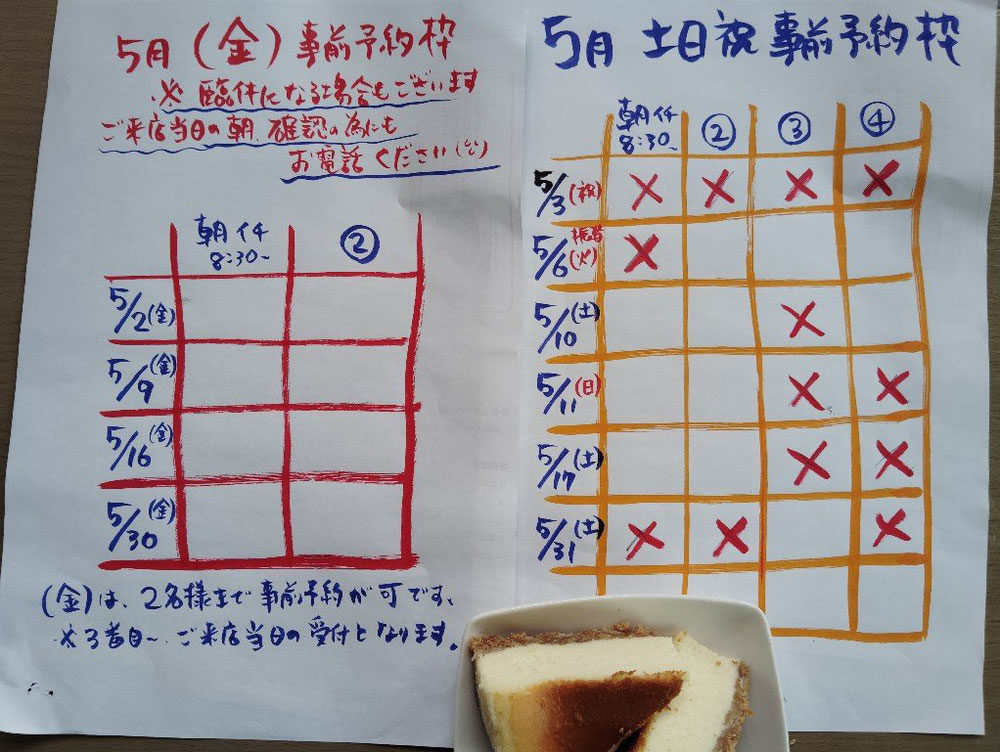 5月(金)事前予約枠
※臨休になる場合もございます
ご来店当日の朝、確認の為にも
お電話ください
朝イチ
8:30~
②
5/2(金)
5/9(金)
5/16(金)
5/30(金)
(金)は、2名様まで事前予約が可です、
※3番目~、ご来店当日の受付となります。
5月 土日祝 事前予約枠
朝イチ
8:30~
② ③ ④
5/3(祝) × × × ×
5/6振替(火) ×
5/10(土) ×
5/11(日) × ×
5/17(土) × ×
5/31(土) × × ×